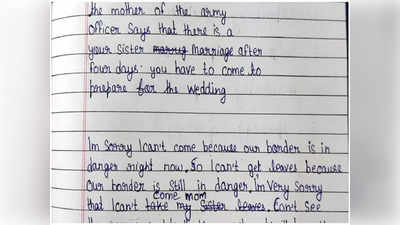 the mother of the army
officer Says that there is a
your Sister Marriage after
Four days. you have to come to
prepare for the wedding
Im Sorry I can't come because our border is in
danger right now, So I can't get leaves because
Our border is still in danger, I'm Very sorry
come mom
that I can't take my Sister leaves. Can't See